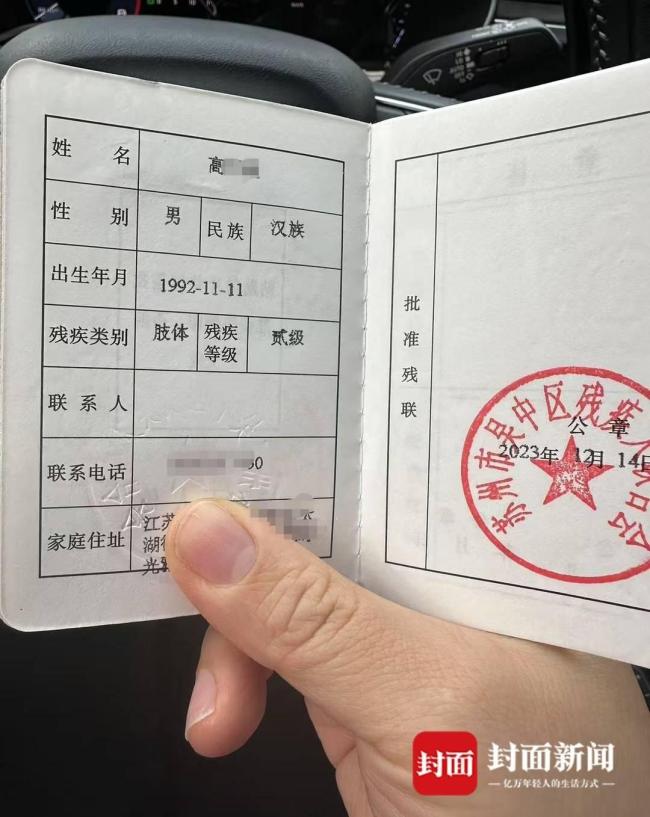 姓名 高
性别 男 民族 汉族
出生年月 1992-11-11
残疾类别 肢体 残疾等级 贰级
联系人
联系电话 0
家庭住址 江苏
湖
光
批准残联
苏州市吴中区残疾人
公章
2023年 12月 14日
封面 封面新闻
亿万年轻人的生活方式